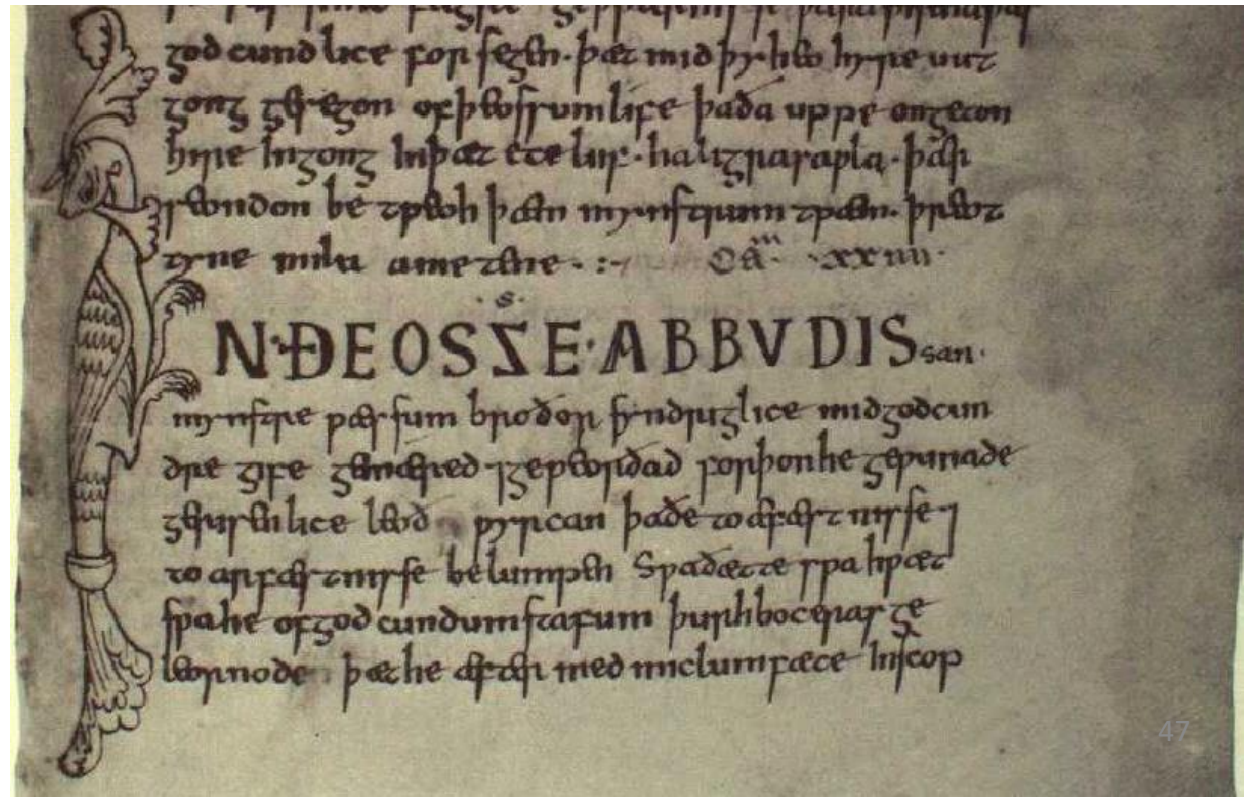 godcundlice for segen· þæt mid þy heo hyre uut
gong gesegon of þeossum life þa ða uppe ongeton
hire ingong in þæt ece lif· haligra saƿla· þær
seondon be tƿeoh þæm mynstrum tƿæm· þreot
tyne mila ametene·:- Cam· xxiiii·
·S·
N·ÐEOSSE·ABBVDIS san·
mynstre ƿæs sum broðor syndriglice mid godcun
dre gife gemæred ⁊ geƿeorðad forþon he geƿunade
gerisenlice leoð ƿyrcan þa ðe to æfæstnisse ⁊
to arfæstnisse belumpen Sƿa ðætte sƿa hƿæt
sƿa he of godcundum stafum þurh boceras ge
leornode þæt he æfter medmiclum fæce in scop
47